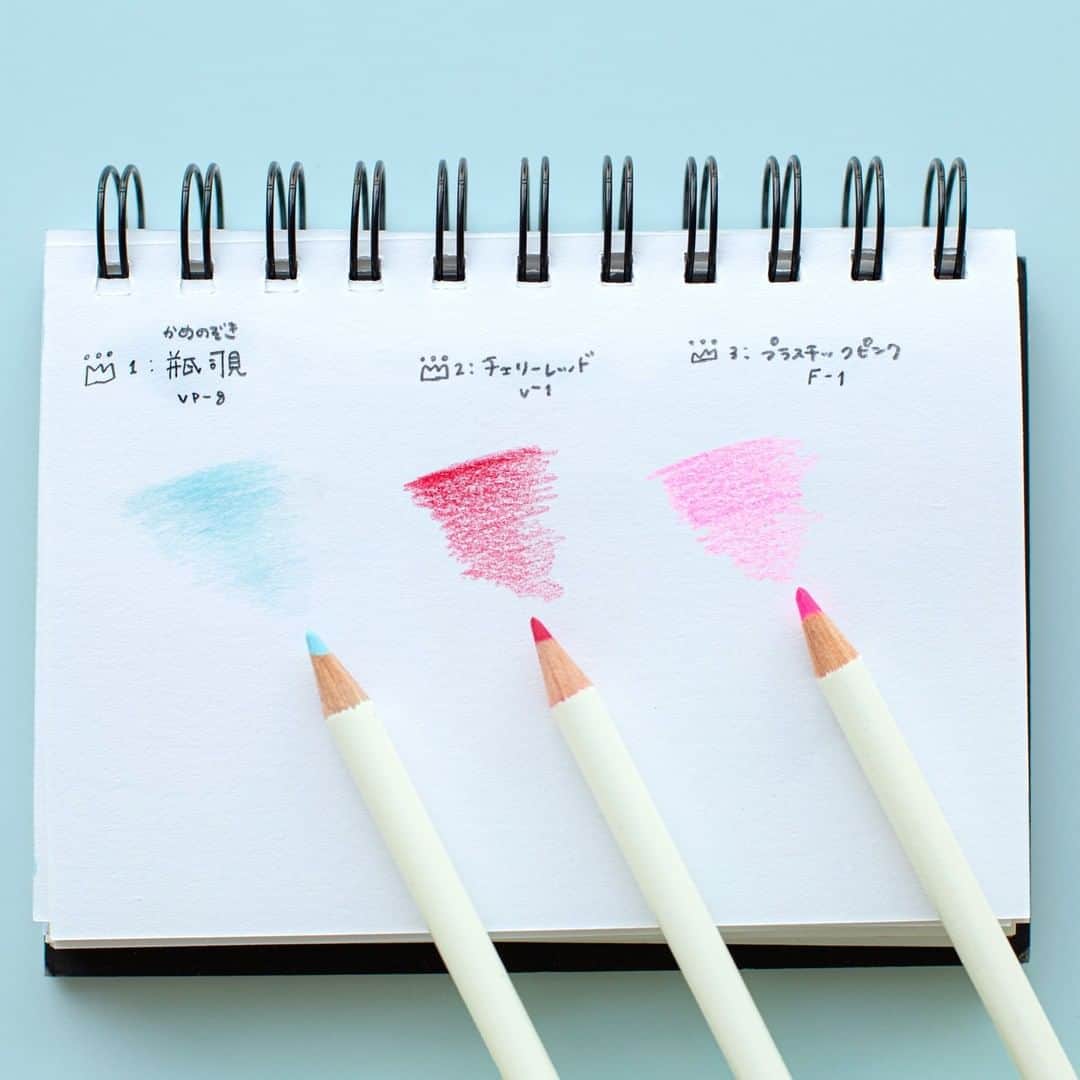 かめのぞき
1：瓶覗
VP-8
2：チェリーレッド
V-1
3：プラスチックピンク
F-1